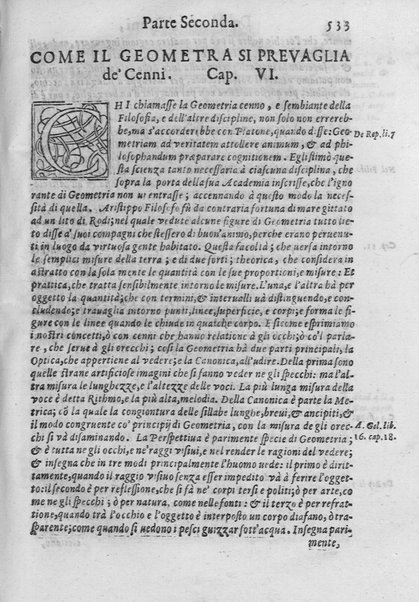 Parte Seconda. 533
COME IL GEOMETRA SI PREVAGLIA
de' Cenni. Cap. VI.
CHI chiamasse la Geometria cenno, e sembiante della
Filosofia, e dell'altre discipline, non solo non errereb-
be, ma s'accorderebbe con Platone, quando disse: Geo De Rep. li. 7
metriam ad veritatem attollere animum, & ad phi-
losophandum præparare cognitionem. Egli stimò que-
sta scienza tanto necessaria à ciascuna disciplina, che
sopra la porta della sua Academia inscrisse, che l'igno
rante di Geometria non vi entrasse; accennando à questo modo la neces-
sità di quella. Aristippo Filosofo sù da contraria fortuna di mare gittato
ad un lito di Rodi; nel quale vedute alcune figure di Geometria tutto lie-
to disse a' suoi compagni che stessero di buon'animo, perche erano peruenu-
ti in luogo da virtuosa gente habitato. Questa facoltà; che versa intorno
le semplici misure della terra; e di due sorti; theorica, che considera in
astratto con la sola mente le quantità con le sue proportioni, e misure: Et
pratica, che tratta sensibilmente intorno le misure. L'una, e l'altra hà per
oggetto la quantità; che con termini, & interualli uà distinguendo, e con-
cludendo; e trauaglia intorno punti, linee, superficie, e corpi; e forma le fi-
gure con le linee quando le chiude in qualche corpo. E sicome esprimiamo
i nostri concetti, ò con cenni che hanno relatione à gli occhi; ò co'l parla-
re, che serue à gli orecchi; così la Geometria hà due parti principali, la
Optica, che appertiene al vedere; e la Canonica, all'udire. Della prima sono
quelle strane artificiose imagini che si fanno veder ne gli specchi: ma l'al-
tra misura le lunghezze, e l'altezze delle voci. La più lunga misura della
voce è detta Rithmo, e la più alta, melodia. Della Canonica è parte la Me-
trica; cō la quale la congiontura delle sillabe lunghe, breui, & ancipiti, &
il modo congruente co' principij di Geometria, con la misura de gli orec- A. Gel. lib.
chi si và disaminando. La Perspettiua è parimente specie di Geometria; 16. cap. 18.
& è tutta ne gli occhi, e ne' raggi visiui, e nel render le ragioni del vedere;
& insegna che in tre modi principalmente l'huomo uede: il primo è dirit-
tamente, quando il raggio visiuo senza esser impedito và à ferire l'ogget-
to: il secondo è per reflessione, che si fà ne' corpi tersi e politi; ò per arte, co
me ne gli specchi; ò per natura, come nelle fonti: & il terzo è per refrat-
tione, quando trà l'occhio e l'oggetto è interposto un corpo diafano, ò tra-
sparente; come quando si uedono i pesci guizzar sott'acqua. Insegna pari-
mente,